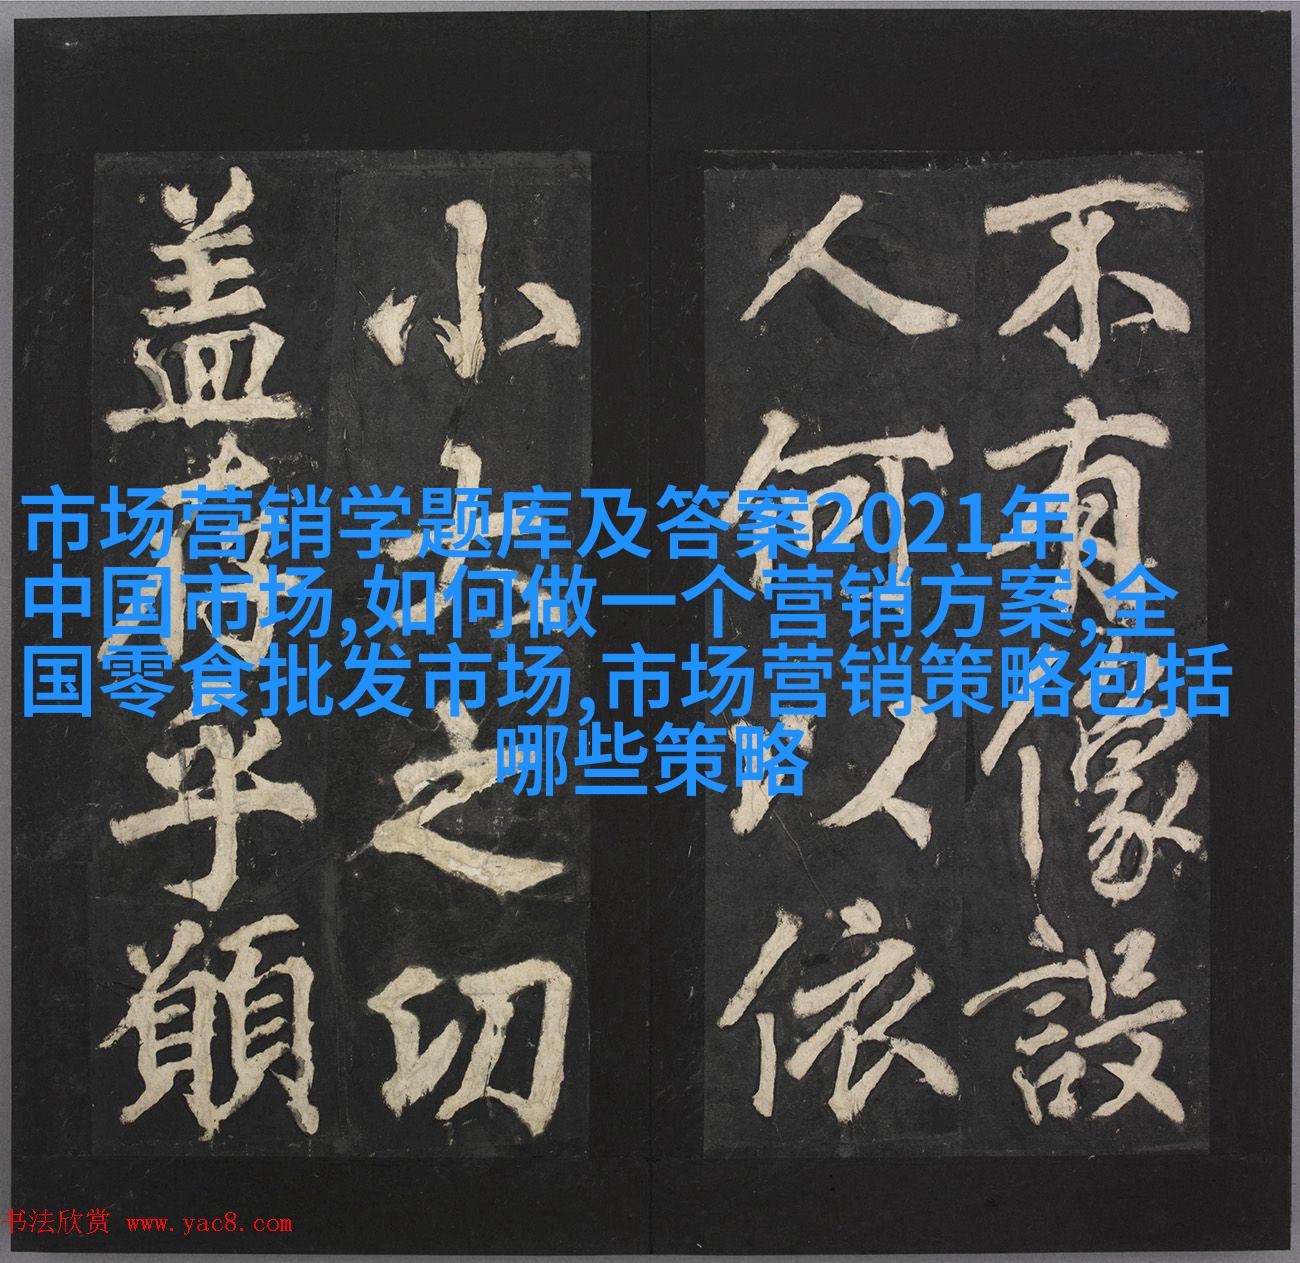 不有像設
人何以依
小大之切
盖有乎願
市场营销学题库及答案2021年,
中国市场,如何做一个营销方案,全
国零食批发市场,市场营销策略包括
哪些策略
书法欣赏 www.yac8.com